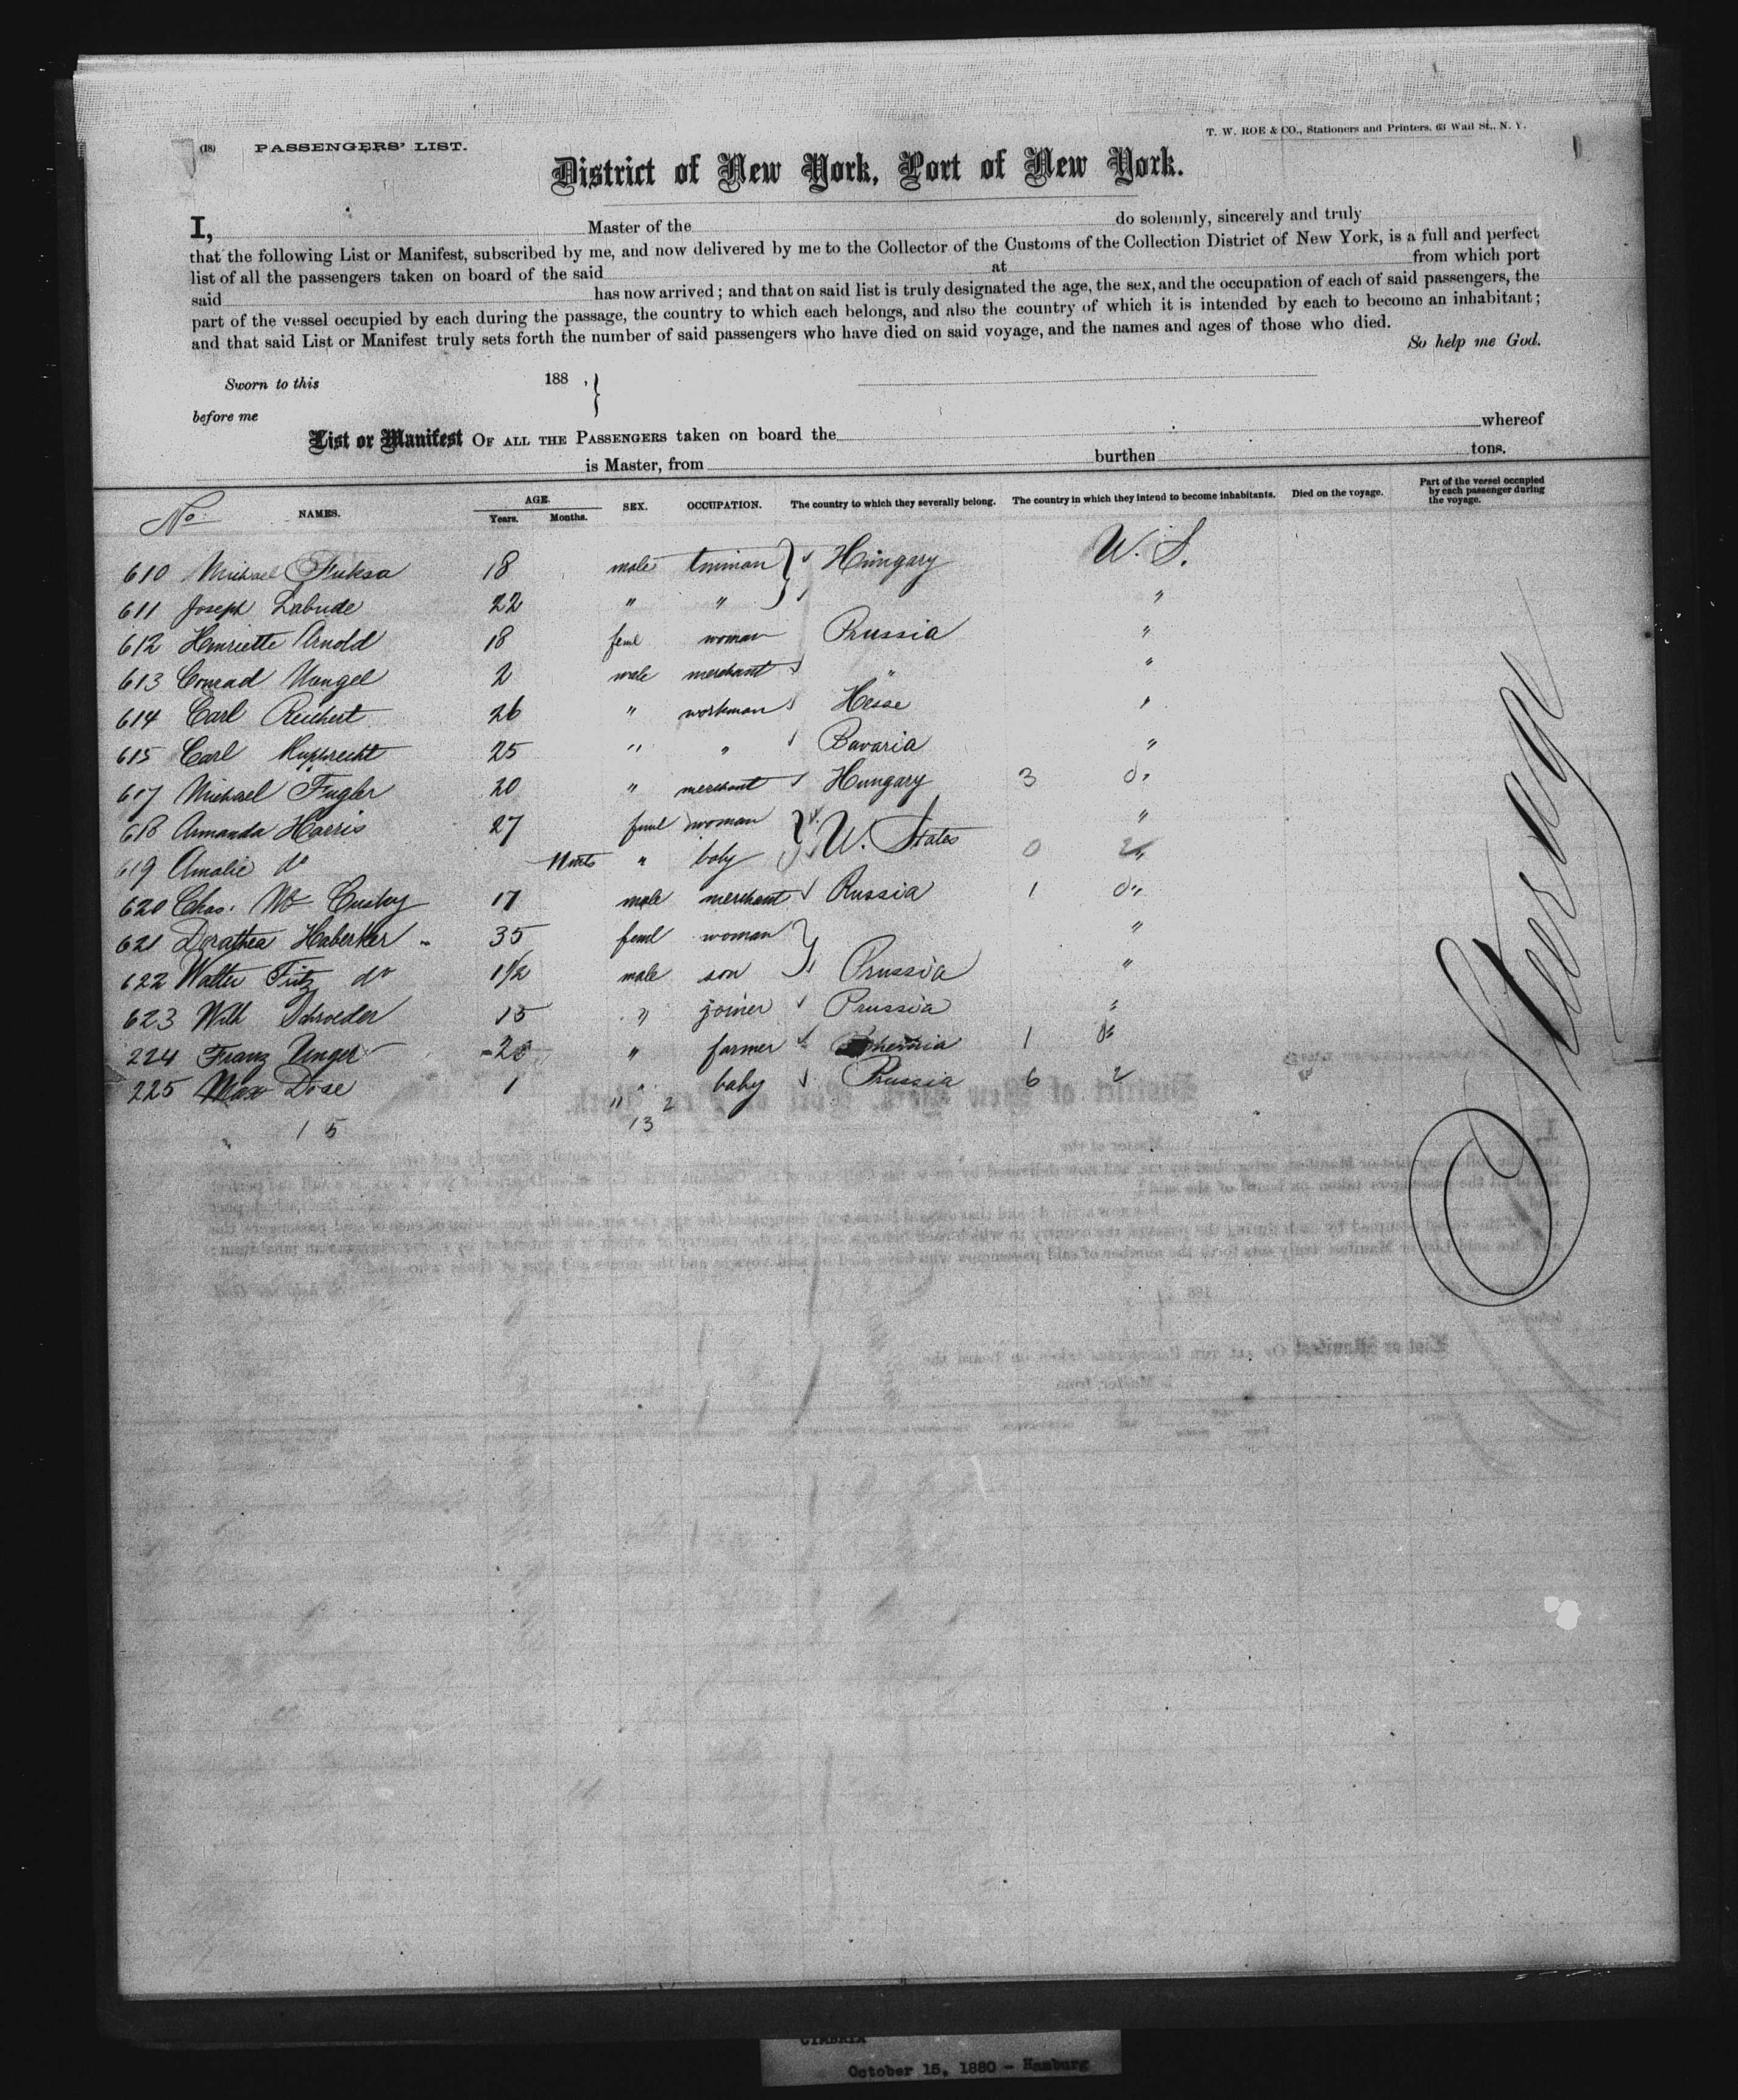 (18) PASSENGERS' LIST.
T. W. ROE & CO., Stationers and Printers, 63 Wall St., N. Y.
District of New York, Port of New York.
I, Master of the do solemnly, sincerely and truly
that the following List or Manifest, subscribed by me, and now delivered by me to the Collector of the Customs of the Collection District of New York, is a full and perfect
list of all the passengers taken on board of the said at from which port
said has now arrived; and that on said list is truly designated the age, the sex, and the occupation of each of said passengers, the
part of the vessel occupied by each during the passage, the country to which each belongs, and also the country of which it is intended by each to become an inhabitant;
and that said List or Manifest truly sets forth the number of said passengers who have died on said voyage, and the names and ages of those who died.
So help me God.
Sworn to this 188 , }
before me
List or Manifest OF ALL THE PASSENGERS taken on board the whereof
is Master, from burthen tons.
No. NAMES. AGE. Years. Months. SEX. OCCUPATION. The country to which they severally belong. The country in which they intend to become inhabitants. Died on the voyage. Part of the vessel occupied by each passenger during the voyage.
610 Michael Fuksa 18 male tinman Hungary U. S.
611 Joseph Labude 22 " " "
612 Henriette Arnold 18 feml woman Prussia "
613 Conrad 2 male merchant " "
614 Carl Reichert 26 " workman Hesse "
615 Carl Rupprecht 25 " " Bavaria "
617 Michael Fugler 20 " merchant Hungary 3 0 "
618 Amanda Harris 27 feml woman U. States "
619 Amalie do 11 mts " baby 0 2 "
620 Chas. 17 male merchant Russia 1 0 "
621 Dorathea Haberker 35 feml woman "
622 Walter Fritz do 1 1/2 male son Prussia "
623 Wilh Schroeder 15 " joiner Prussia "
224 Franz Unger " farmer Bohemia 1 0 "
225 Max Dose 1 " baby Prussia 6 2
15 13 2
Steerage
CIMBRIA
October 15, 1880 - Hamburg